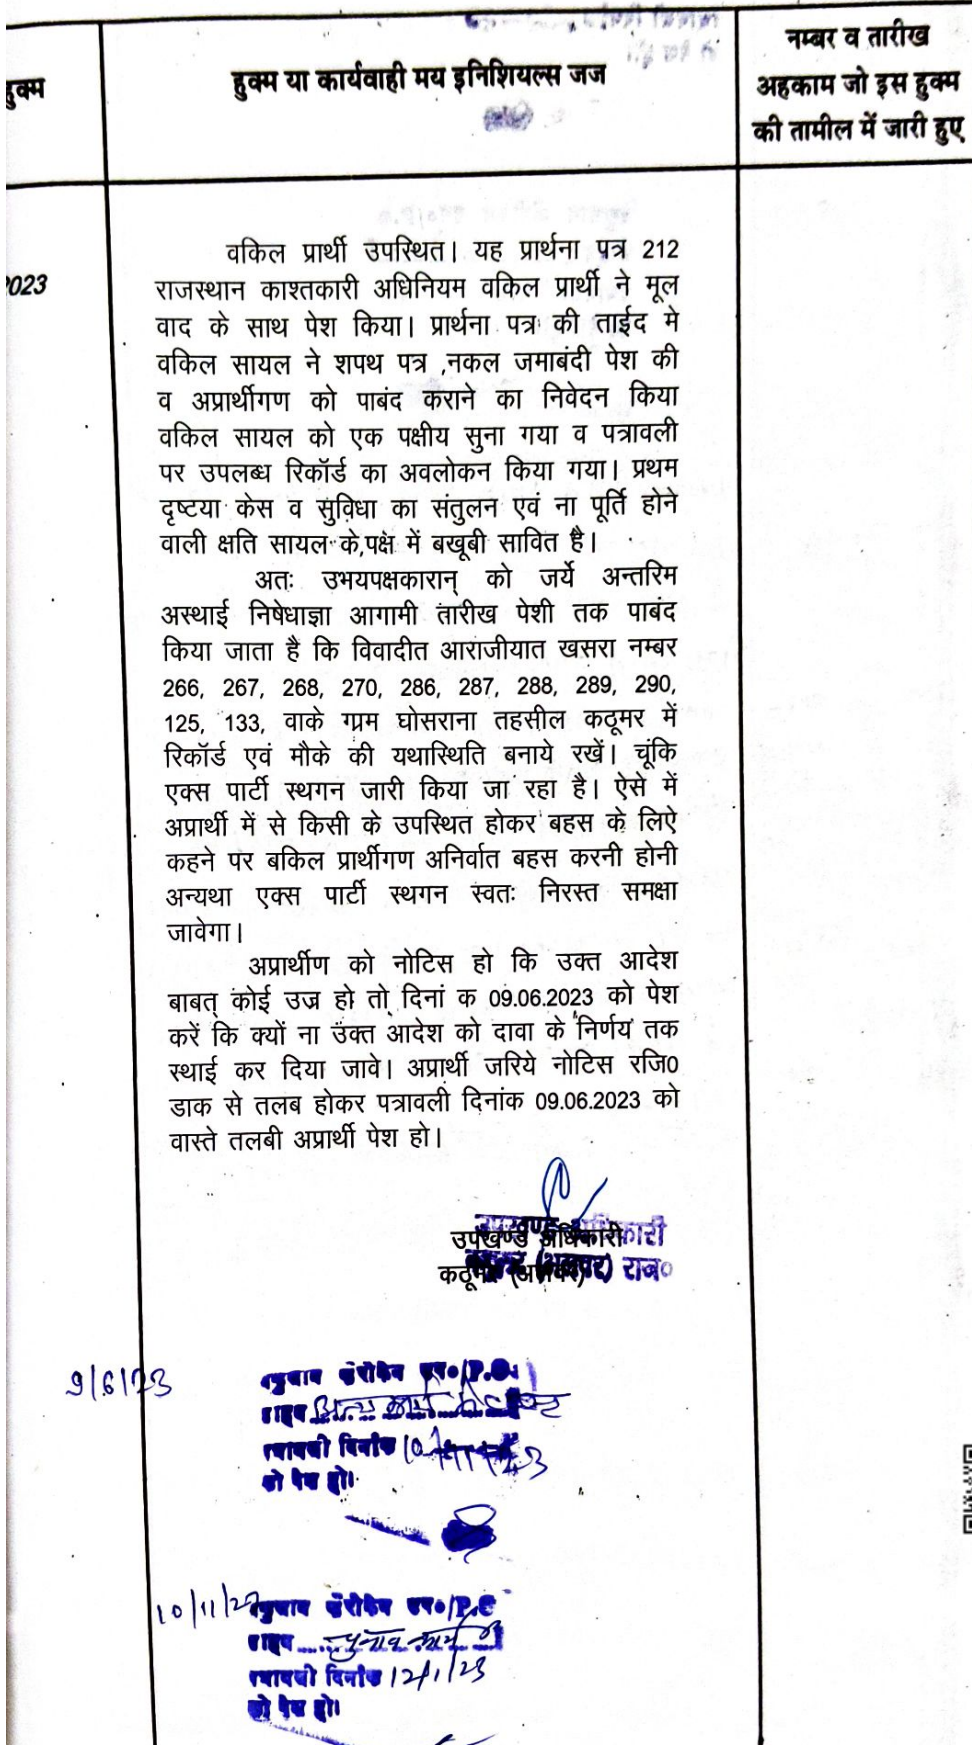 हुक्म
हुक्म या कार्यवाही मय इनिशियल्स जज
नम्बर व तारीख
अहकाम जो इस हुक्म
की तामील में जारी हुए
2023
वकिल प्रार्थी उपस्थित। यह प्रार्थना पत्र 212
राजस्थान काश्तकारी अधिनियम वकिल प्रार्थी ने मूल
वाद के साथ पेश किया। प्रार्थना पत्र की ताईद मे
वकिल सायल ने शपथ पत्र ,नकल जमाबंदी पेश की
व अप्रार्थीगण को पाबंद कराने का निवेदन किया
वकिल सायल को एक पक्षीय सुना गया व पत्रावली
पर उपलब्ध रिकॉर्ड का अवलोकन किया गया। प्रथम
दृष्टया केस व सुविधा का संतुलन एवं ना पूर्ति होने
वाली क्षति सायल के पक्ष में बखूबी सावित है।
अतः उभयपक्षकारान् को जर्ये अन्तरिम
अस्थाई निषेधाज्ञा आगामी तारीख पेशी तक पाबंद
किया जाता है कि विवादीत आराजीयात खसरा नम्बर
266, 267, 268, 270, 286, 287, 288, 289, 290,
125, 133, वाके ग्राम घोसराना तहसील कठूमर में
रिकॉर्ड एवं मौके की यथास्थिति बनाये रखें। चूंकि
एक्स पार्टी स्थगन जारी किया जा रहा है। ऐसे में
अप्रार्थी में से किसी के उपस्थित होकर बहस के लिऐ
कहने पर बकिल प्रार्थीगण अनिर्वात बहस करनी होनी
अन्यथा एक्स पार्टी स्थगन स्वतः निरस्त समक्षा
जावेगा।
अप्रार्थीण को नोटिस हो कि उक्त आदेश
बाबत् कोई उज्र हो तो दिनां क 09.06.2023 को पेश
करें कि क्यों ना उक्त आदेश को दावा के निर्णय तक
स्थाई कर दिया जावे। अप्रार्थी जरिये नोटिस रजि0
डाक से तलब होकर पत्रावली दिनांक 09.06.2023 को
वास्ते तलबी अप्रार्थी पेश हो।
उपखण्ड अधिकारी
कठूमर (अलवर) राज०
9/6/23
P.O.
पत्रावली दिनांक
को पेश हो।
10/11/23
चुनाव कार्य
पत्रावली दिनांक 12/1/23
को पेश हो।